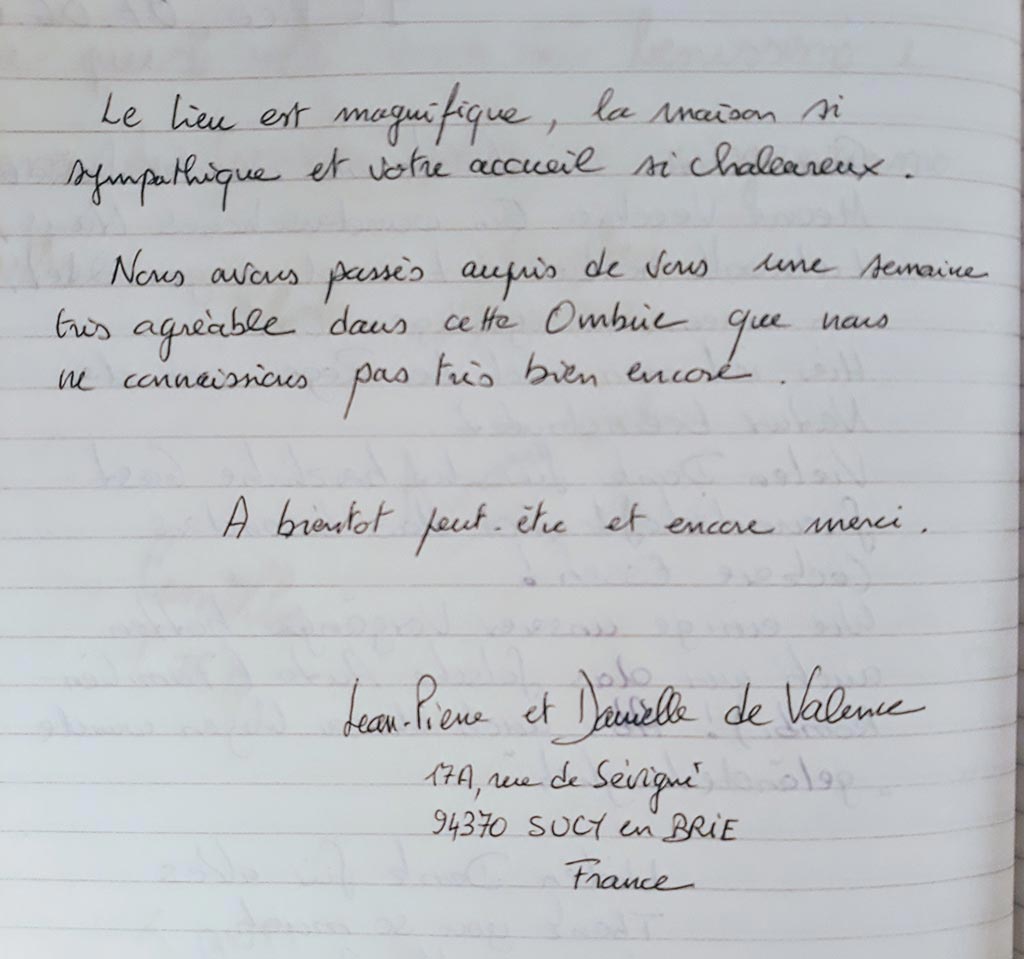 Le lieu est magnifique, la maison si
sympathique et votre accueil si chaleureux.
Nous avons passés auprès de vous une semaine
très agréable dans cette Ombrie que nous
ne connaissions pas très bien encore.
A bientôt peut-être et encore merci.
Jean-Pierre et Danielle de Valence
17A, rue de Sévigné
94370 SUCY en BRIE
France